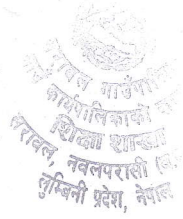 गाउँपालिका
कार्यपालिकाको
शिक्षा शाखा
सरावल, नवलपरासी
लुम्बिनी प्रदेश, नेपाल